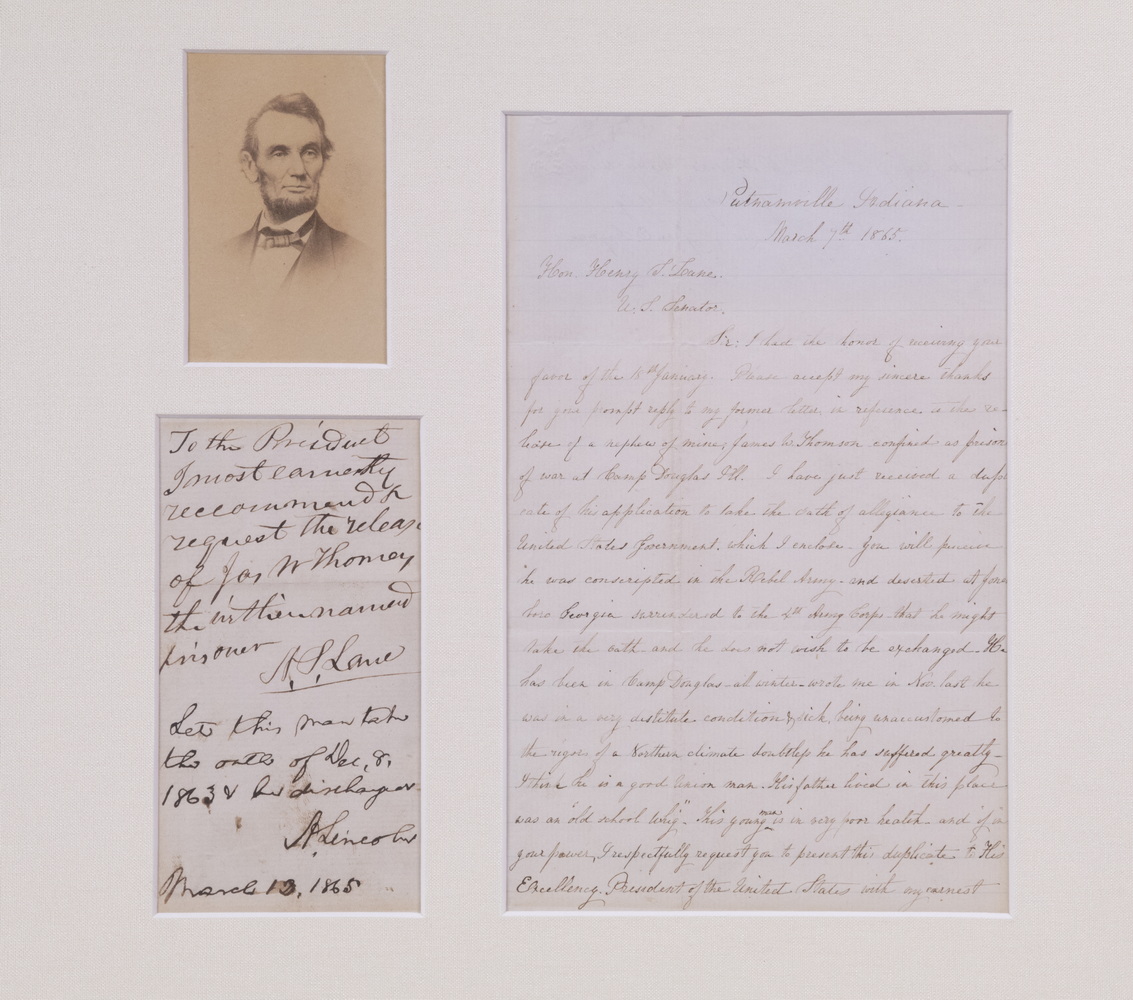 To the President
I most earnestly
recommend &
request the releas
of Jas W Thomey
the within named
prisoner
H. S. Lane
Let this man take
the oath of Dec. 8.
1863 & be discharged
A. Lincoln
March 13, 1865
Putnamville Indiana
March 7th 1865.
Hon. Henry S. Lane.
U. S. Senator.
Sir: I had the honor of receiving your
favor of the 18th January. Please accept my sincere thanks
for your prompt reply to my former letter, in reference to the re-
lease of a nephew of mine, James W. Thomson confined as prison
of war at Camp Douglas Ill. I have just received a dupli
cate of his application to take the oath of allegiance to the
United States Government. which I enclose. You will perceive
he was conscripted in the Rebel Army and deserted at Jones
boro Georgia surrendered to the 4th Army Corps that he might
take the oath and he does not wish to be exchanged. He
has been in Camp Douglas all winter wrote me in Nov. last he
was in a very distitute condition & sick, being unaccustomed to
the rigor of a Northern climate doubtless he has suffered greatly
I think he is a good Union man. His father lived in this place
was an "old school Whig". This young man is in very poor health and if in
your power, I respectfully request you to present this duplicate to His
Excellency, President of the United States with my earnest